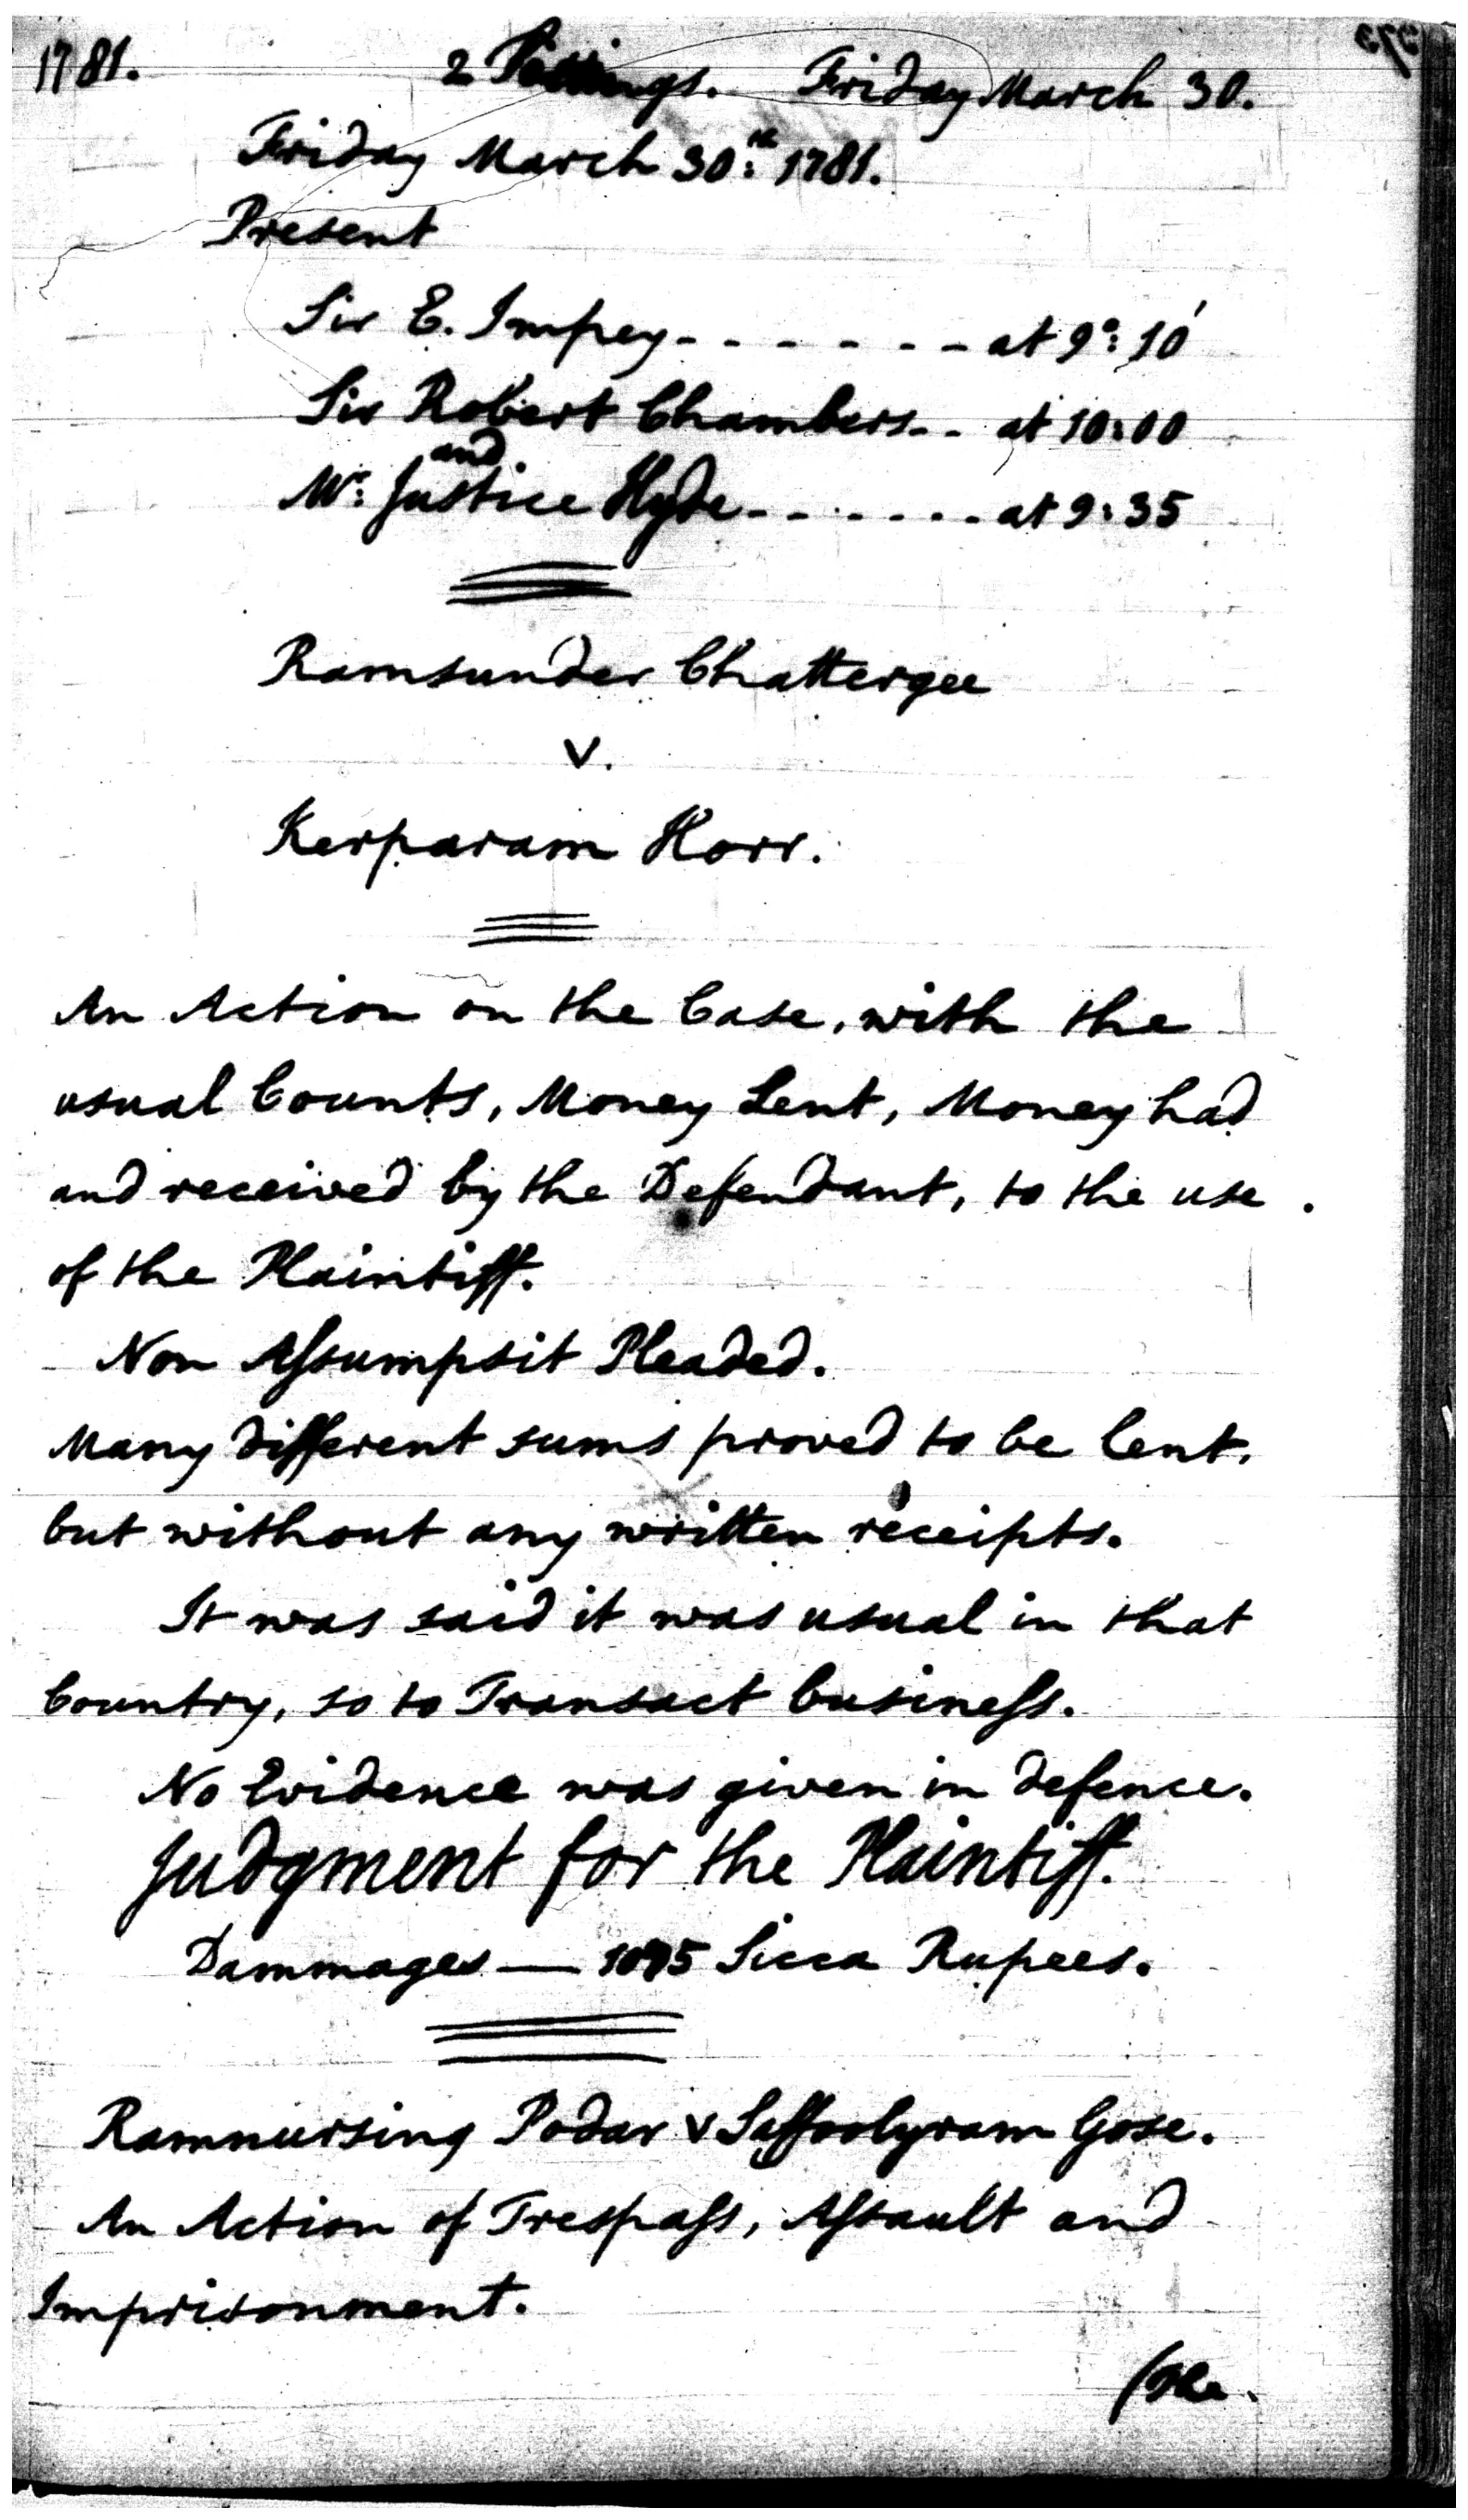 1781. 2 Sittings. Friday March 30.
Friday March 30:th 1781.
Present
Sir E. Impey - - - - - - - at 9°: 10'
Sir Robert Chambers - - at 10:00
and
Mr: Justice Hyde - - - - - - - at 9:35
Ramsunder Chattergee
v.
Kerparam Horr.
An Action on the Case, with the
usual Counts, Money Lent, Money had
and received by the Defendant, to the use
of the Plaintiff.
Non Aſsumpsit Pleaded.
Many different sums proved to be lent,
but without any written receipts.
It was said it was usual in that
Country, so to Transact busineſs.
No Evidence was given in defence.
Judgment for the Plaintiff.
Dammages — Sicca Rupees.
Ramnursing Podar v Gose.
An Action of Trespaſs, Aſsault and
Imprisonment.
(The